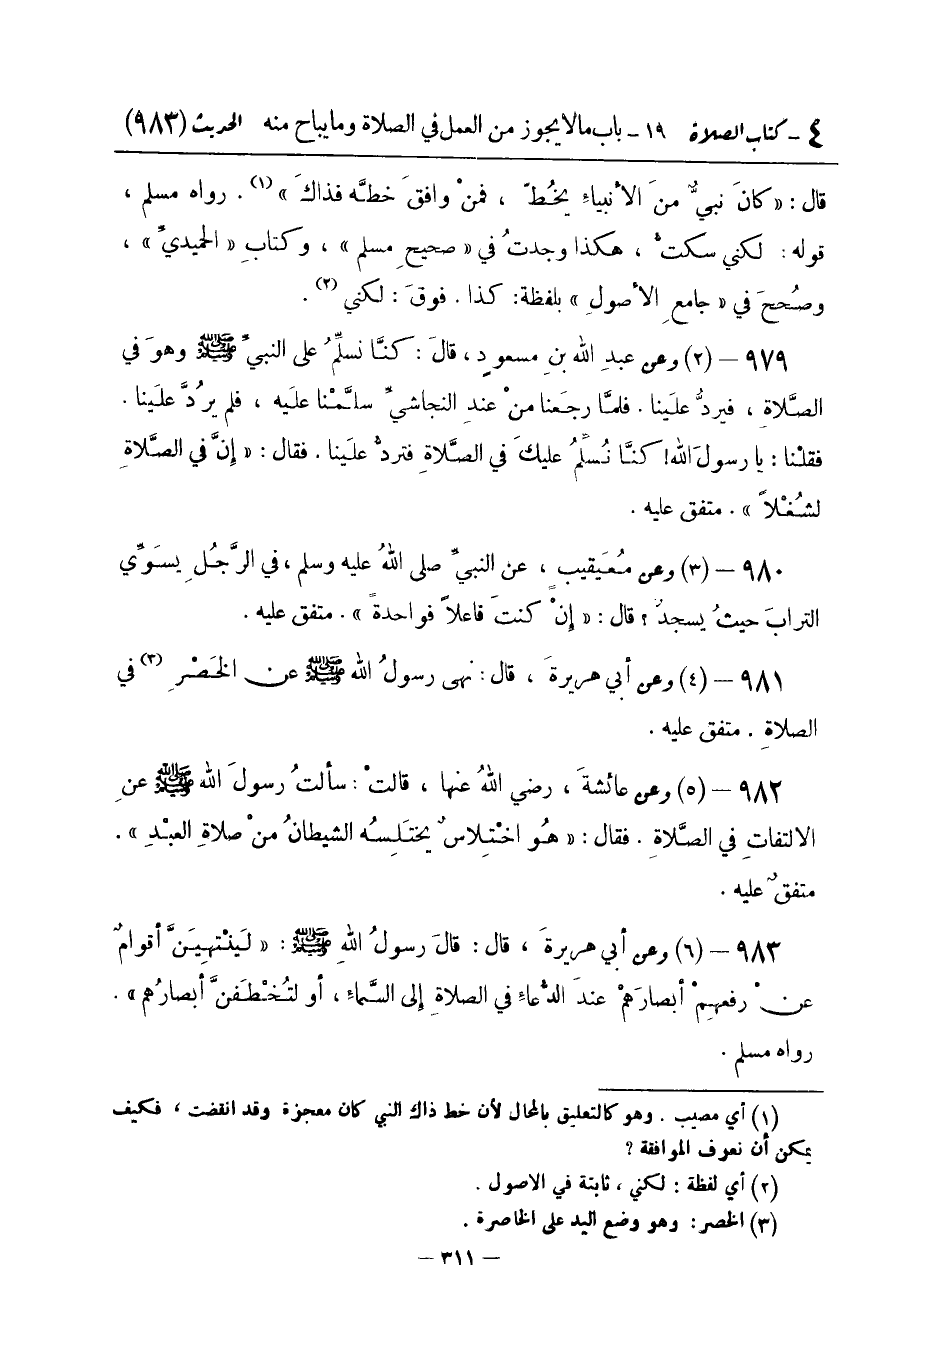 ٤ - كتاب الصلاة ١٩ - باب مالا يجوز من العمل في الصلاة وما يباح منه الحديث (٩٨٣)
قال : « كانَ نبيٌّ منَ الأنبياءِ يخُطّ ، فمنْ وافقَ خطَّه فذاكَ » (١) . رواه مسلم ،
قوله : لكني سكتُّ ، هكذا وجدتُ في « صحيحِ مسلم » ، وكتابِ « الحميديِّ » ،
وصُححَ في « جامعِ الأصولِ » بلفظة : كذا . فوقَ : لكني (٢) .
٩٧٩ – (٢) وعن عبدِ الله بنِ مسعودٍ ، قالَ : كنَّا نسلِّمُ على النبيِّ ﷺ وهوَ في
الصَّلاةِ ، فيردُّ علَينا . فلمَّا رجَعنا منْ عندِ النجاشيِّ سلَّمْنا علَيه ، فلم يرُدَّ علَينا .
فقلْنا : يا رسولَ الله! كنَّا نُسلِّمُ عليكَ في الصَّلاةِ فتردُّ علَينا . فقال : « إنَّ في الصَّلاةِ
لشُغْلاً » . متفق عليه .
٩٨٠ – (٣) وعن مُعَيقيب ، عن النبيِّ صلى اللهُ عليه وسلم ، في الرَّجُلِ يسَوِّي
الترابَ حيثُ يسجدُ ؟ قال : « إنْ كنتَ فاعلاً فواحدةً » . متفق عليه .
٩٨١ – (٤) وعن أبي هريرةَ ، قال : نهى رسولُ الله ﷺ عن الخَصْرِ (٣) في
الصلاةِ . متفق عليه .
٩٨٢ – (٥) وعن عائشةَ ، رضي اللهُ عنها ، قالتْ : سألتُ رسولَ الله ﷺ عنِ
الالتفاتِ في الصَّلاةِ . فقال : « هُو اختْلِاسٌ يختَلِسُه الشيطانُ منْ صلاةِ العبْدِ » .
متفقٌ عليه .
٩٨٣ – (٦) وعن أبي هريرةَ ، قال : قالَ رسولُ اللهِ ﷺ : « لَينْتهِيَنَّ أقوامٌ
عنْ رفعِهِمْ أبصارَهمْ عندَ الدُّعاءِ في الصلاةِ إلى السَّماءِ ، أو لتُخْطَفنَّ أبصارُهم » .
رواه مسلم .
(١) أي مصيب . وهو كالتعليق بالمحال لأن خط ذاك النبي كان معجزة وقد انقضت ، فكيف
يمكن أن نعرف الموافقة ؟
(٢) أي لفظة : لكني ، ثابتة في الاصول .
(٣) الخصر : وهو وضع اليد على الخاصرة .
– ٣١١ –